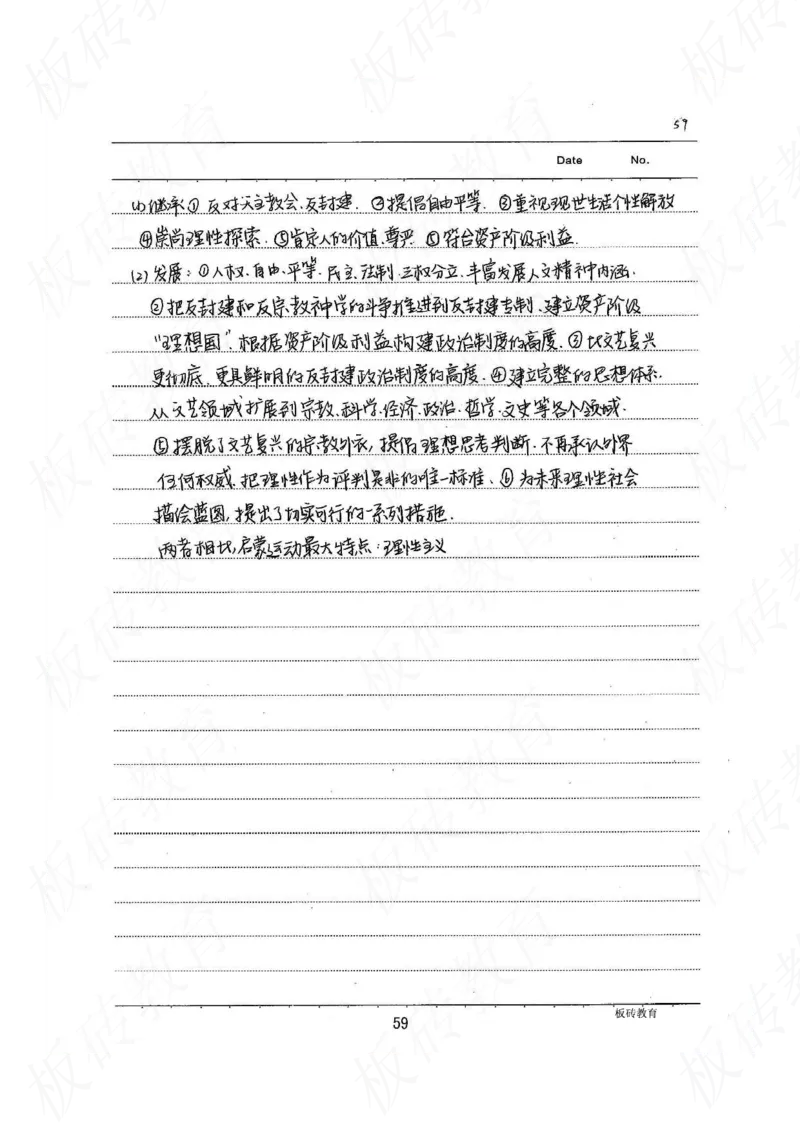 59
Date No.
(1)继承①反对天主教会、反封建. ②提倡自由平等. ③重视现世生活个性解放
④崇尚理性探索. ⑤肯定人的价值、尊严. ⑥符合资产阶级利益.
(2)发展：①人权、自由、平等、民主、法制、三权分立、丰富发展人文精神内涵.
②把反封建和反宗教神学的斗争推进到反封建专制、建立资产阶级
“理想国”、根据资产阶级利益构建政治制度的高度. ③比文艺复兴
更彻底、更具鲜明的反封建政治制度的高度. ④建立完整的思想体系.
从文艺领域扩展到宗教、科学、经济、政治、哲学、文史等各个领域.
⑤摆脱了文艺复兴的宗教外衣，提倡理想思考判断、不再承认外界
任何权威、把理性作为评判是非的唯一标准、⑥为未来理性社会
描绘蓝图，提出了切实可行的一系列措施.
两者相比，启蒙运动最大特点：理性主义
59
板砖教育